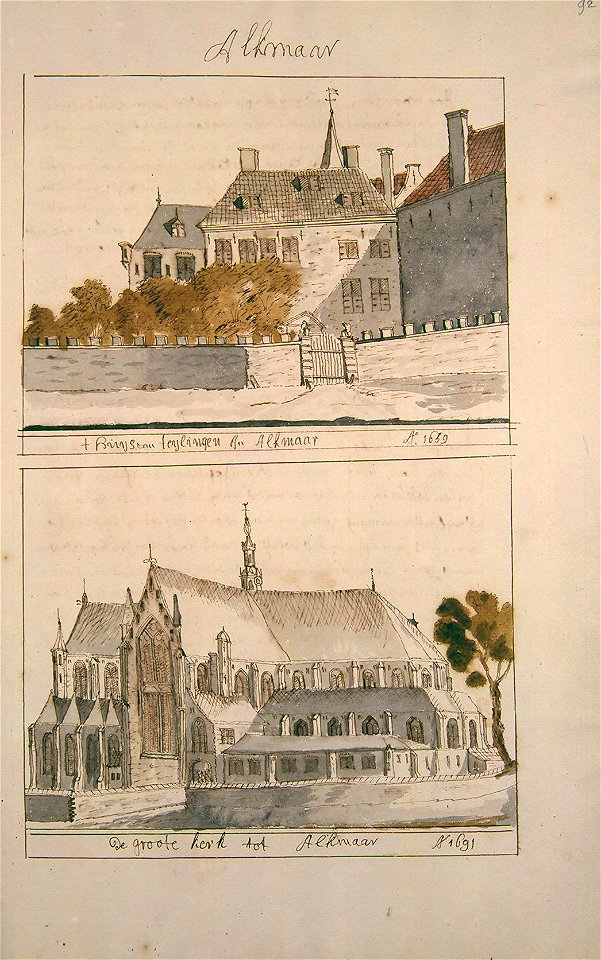 92
Alkmaar
t Huys van Teylingen In Alkmaar Aº 1689
De groote kerk tot Alkmaar Aº 1691